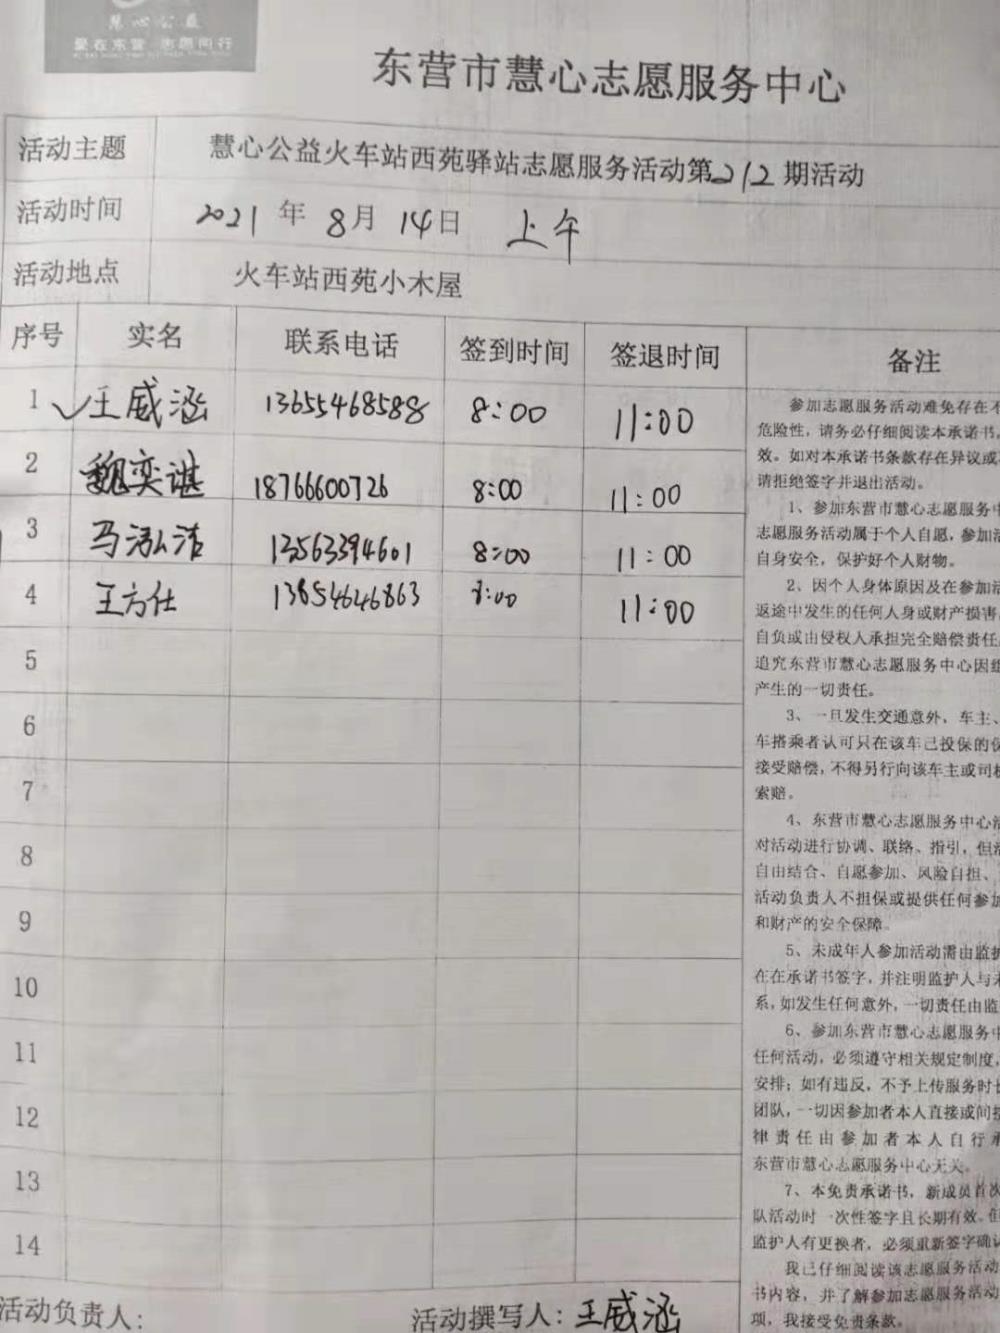 慧心公益
爱在东营 志愿同行
东营市慧心志愿服务中心
活动主题 慧心公益火车站西苑驿站志愿服务活动第212期活动
活动时间 2021年8月14日 上午
活动地点 火车站西苑小木屋
序号 实名 联系电话 签到时间 签退时间 备注
1 王威涵 13655468588 8:00 11:00
2 魏奕谌 18766600726 8:00 11:00
3 马泓洁 13563394601 8:00 11:00
4 王方仕 13854646863 8:00 11:00
5
6
7
8
9
10
11
12
13
14
参加志愿服务活动难免存在不
危险性，请务必仔细阅读本承诺书，
效。如对本承诺书条款存在异议或
请拒绝签字并退出活动。
1、参加东营市慧心志愿服务中
志愿服务活动属于个人自愿，参加活
自身安全，保护好个人财物。
2、因个人身体原因及在参加活
返途中发生的任何人身或财产损害
自负或由侵权人承担完全赔偿责任
追究东营市慧心志愿服务中心因组
产生的一切责任。
3、一旦发生交通意外，车主、
车搭乘者认可只在该车已投保的保
接受赔偿，不得另行向该车主或司机
索赔。
4、东营市慧心志愿服务中心活
对活动进行协调、联络、指引，但活
自由结合、自愿参加、风险自担、
活动负责人不担保或提供任何参加
和财产的安全保障。
5、未成年人参加活动需由监护
在在承诺书签字，并注明监护人与未
系，如发生任何意外，一切责任由监
6、参加东营市慧心志愿服务中
任何活动，必须遵守相关规定制度，
安排；如有违反，不予上传服务时长
团队，一切因参加者本人直接或间接
律责任由参加者本人自行承
东营市慧心志愿服务中心无关。
7、本免责承诺书，新成员首次
队活动时一次性签字且长期有效。但
监护人有更换者，必须重新签字确认
我已仔细阅读该志愿服务活动
书内容，并了解参加志愿服务活动
项，我接受免责条款。
活动负责人： 活动撰写人：王威涵